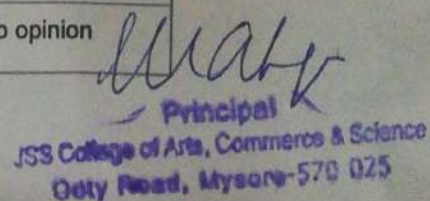 o opinion
Principal
JSS College of Arts, Commerce & Science
Ooty Road, Mysore-570 025